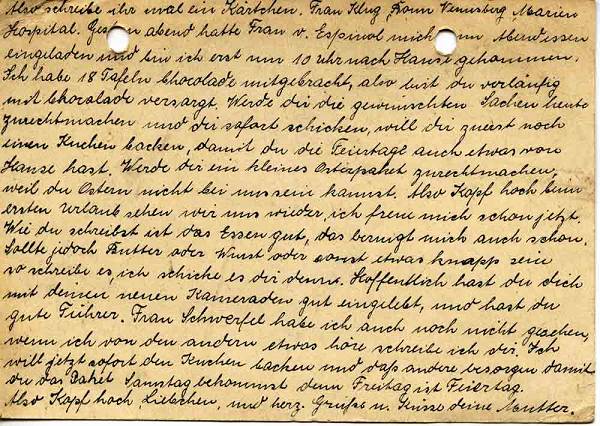 Also schreibe ihr mal ein Kärtchen. Frau Klug, Bonn Venusberg, Marien
Hospital. Gestern abend hatte Frau v. Espinol mich zum Abendessen
eingeladen und bin ich erst um 10 uhr nach Hause gekommen.
Ich habe 18 Tafeln Chocolade mitgebracht, also bist du vorläufig
mit Chocolade versorgt. Werde dir die gewünschten Sachen heute
zurechtmachen und dir sofort schicken, will dir zuerst noch
einen Kuchen backen, damit du die Feiertage auch etwas von
Hause hast. Werde dir ein kleines Osterpaket zurechtmachen,
weil du Ostern nicht bei uns sein kannst. Also Kopf hoch beim
ersten Urlaub sehen wir uns wieder, ich freue mich schon jetzt.
Wie du schreibst ist das Essen gut, das beruigt mich auch schon.
Sollte jedoch Butter oder Wurst oder sonst etwas knapp sein
so schreibe es, ich schicke es dir denns. Hoffentlich hast du dich
mit deinen neuen Kameraden gut eingelebt, und hast du
gute Führer. Frau Schwerfel habe ich auch noch nicht gesehen,
wenn ich von den andern etwas höre schreibe ich dir. Ich
will jetzt sofort den Kuchen backen und daß andere besorgen damit
du das Paket Samstag bekommst denn Freitag ist Feiertag.
Also Kopf hoch Liebchen, und herz. Grüße u. Küsse deine Mutter.